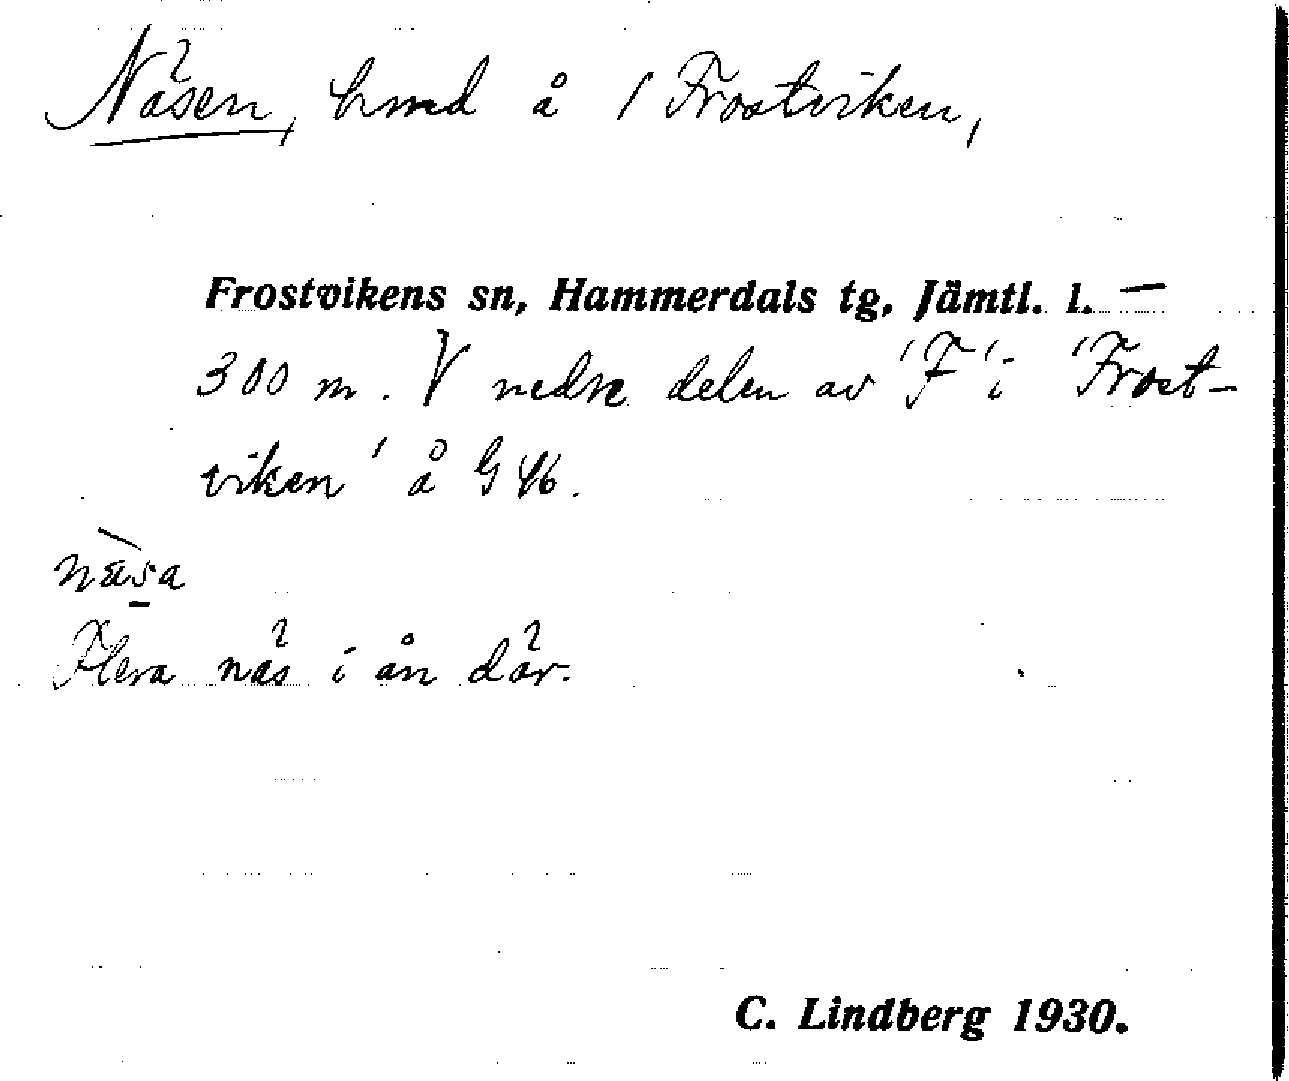 Näsen, hmd å / Frostviken,
Frostvikens sn, Hammerdals tg, Jämtl. l. —
300 m. V nedre delen av 'F' i 'Frost-
viken' å G 46.
næ̀sa
Flera näs i ån där.
C. Lindberg 1930.